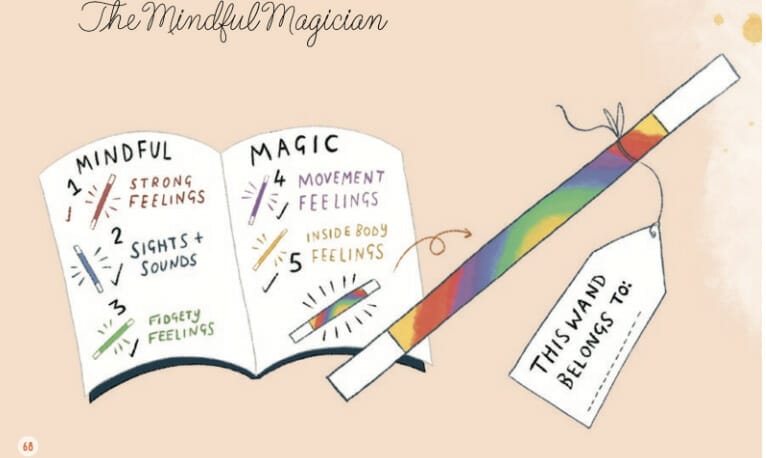 The Mindful Magician
MINDFUL
1 STRONG
FEELINGS
2 SIGHTS +
SOUNDS
3 FIDGETY
FEELINGS
MAGIC
4 MOVEMENT
FEELINGS
INSIDE BODY
5 FEELINGS
THIS WAND
BELONGS TO:
68